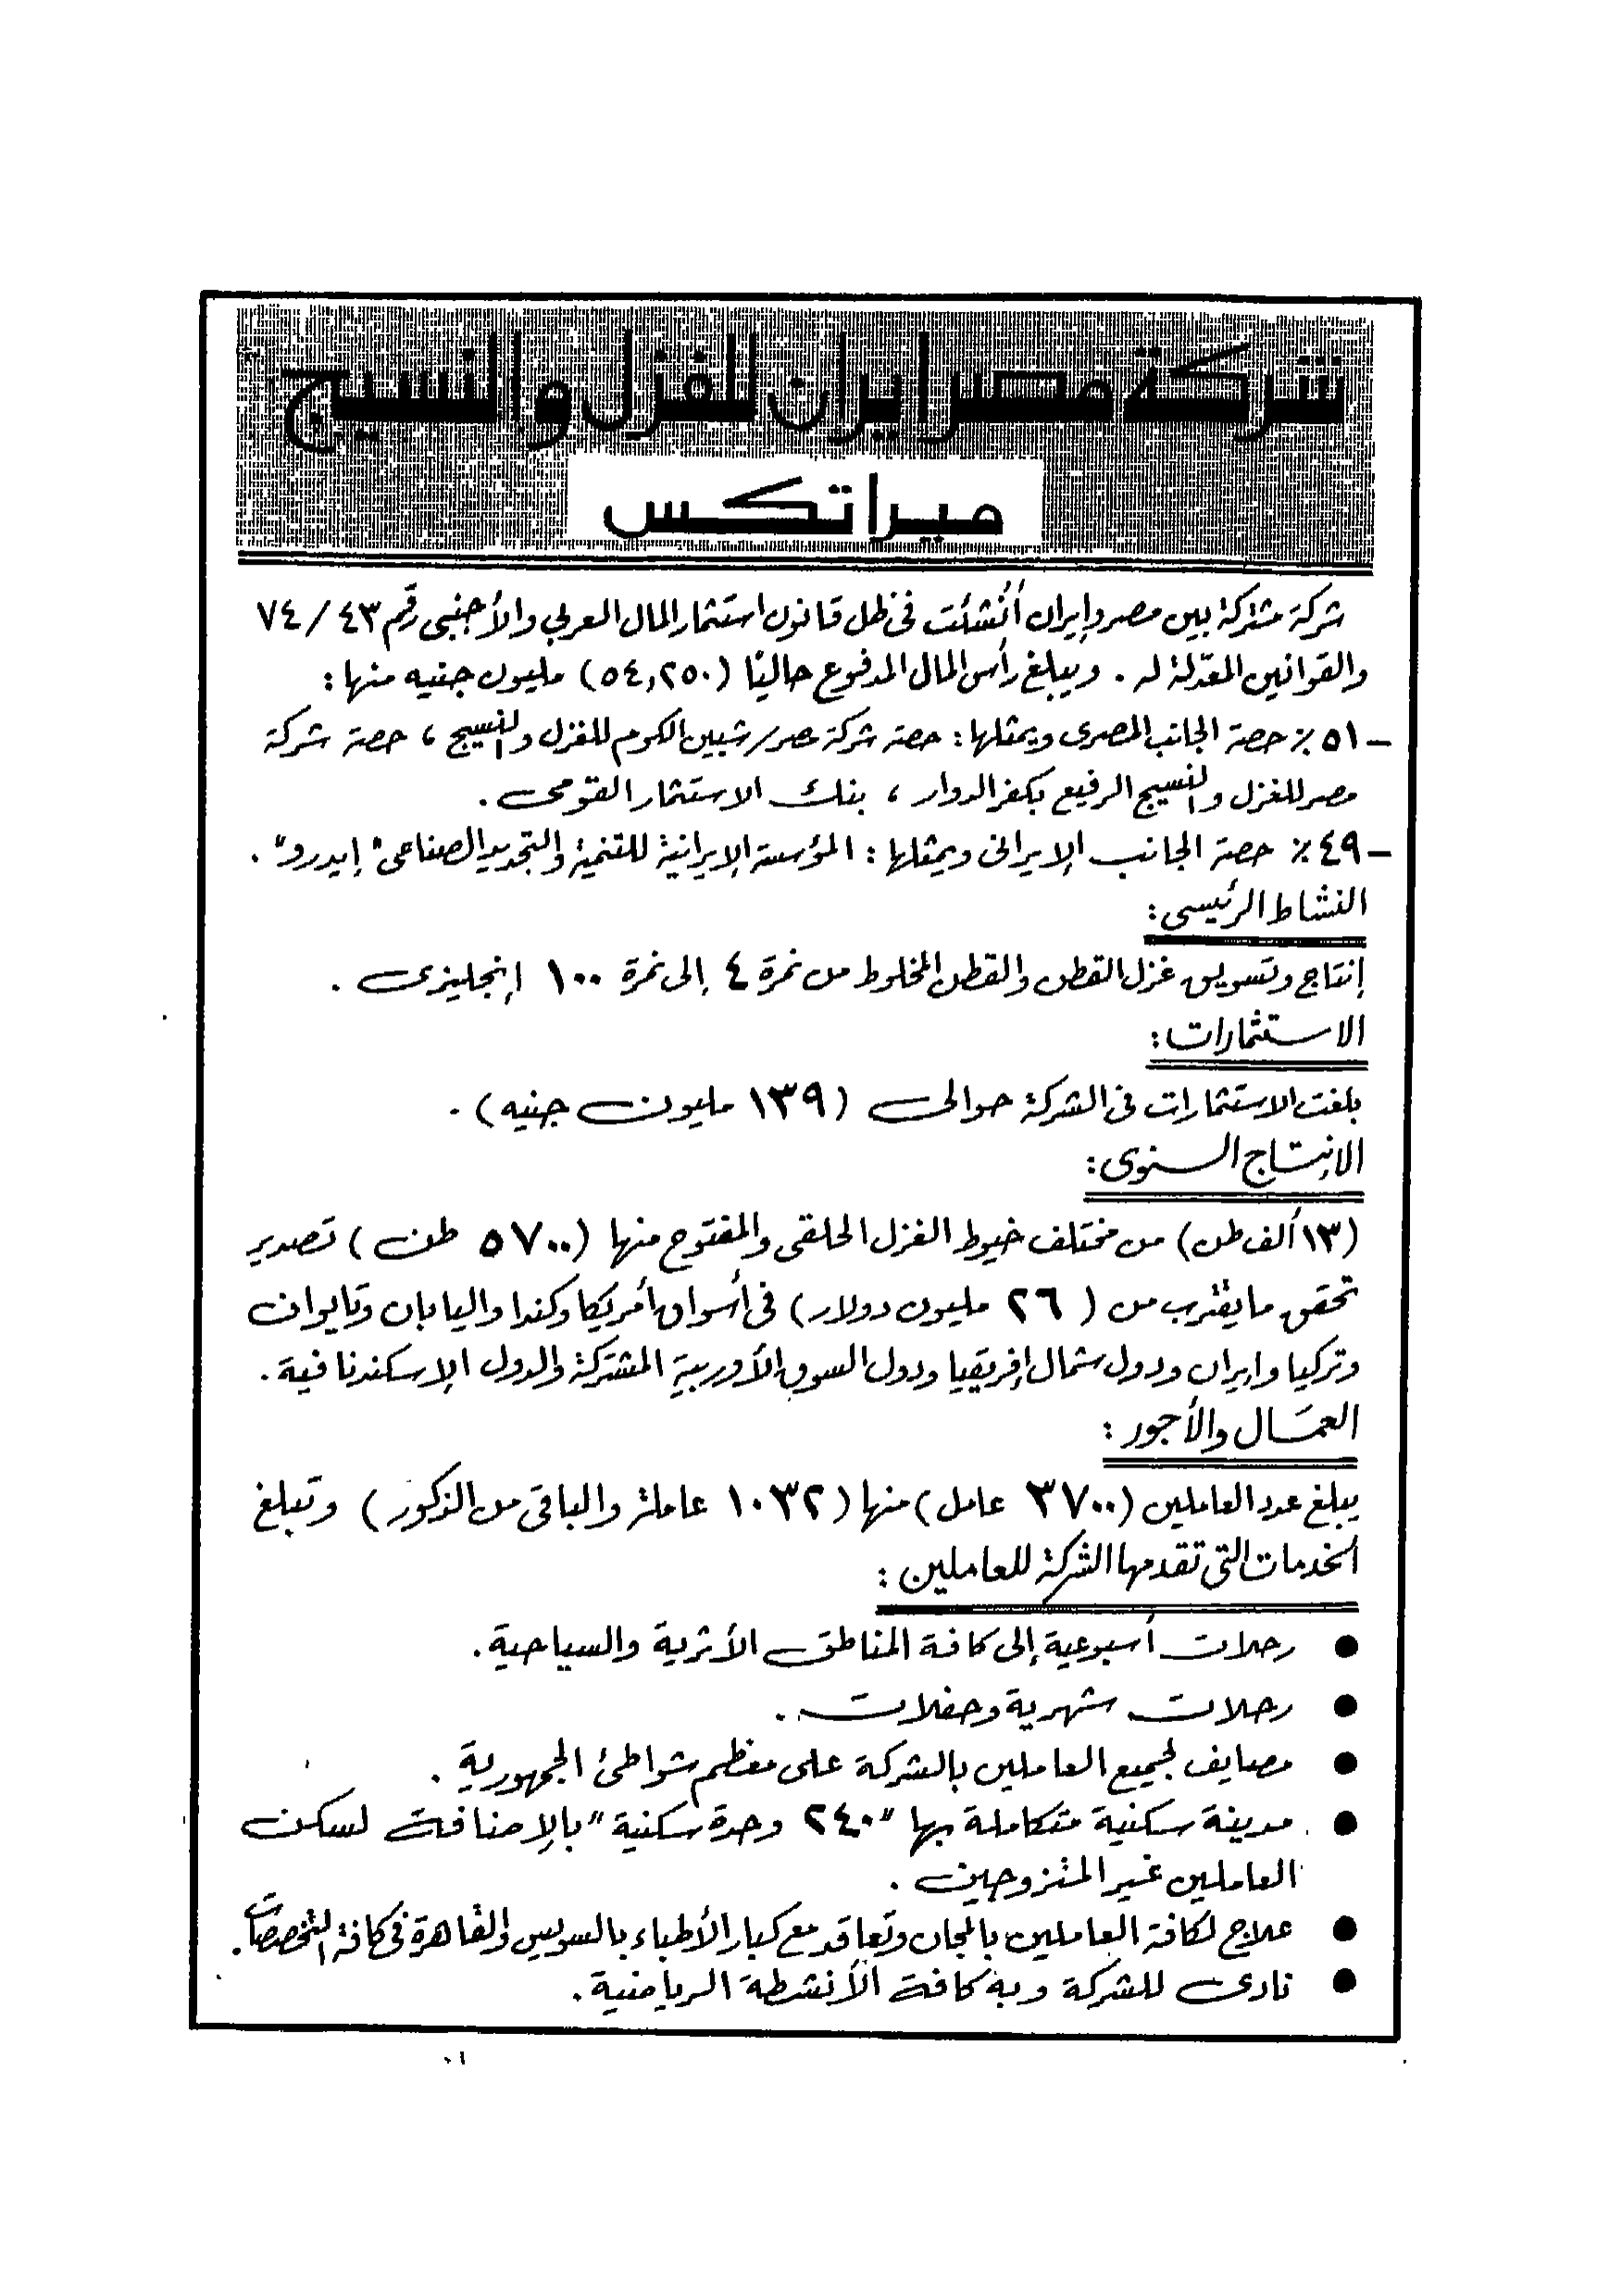 شركة مصر إيران للغزل والنسيج
ميراتكس
شركة مشتركة بين مصر وإيران أُنشئت فى ظل قانون استثمار المال العربي والأجنبى رقم ٤٣ / ٧٤
والقوانين المعدّلة له . ويبلغ رأس المال المدفوع حاليًا (٥٤,٢٥٠) مليون جنيه منها :
- ٥١ ٪ حصة الجانب المصرى ويمثلها : حصة شركة مصر/شبين الكوم للغزل والنسيج ، حصة شركة
مصر للغزل والنسيج الرفيع بكفر الدوار ، بنك الاستثمار القومى .
- ٤٩ ٪ حصة الجانب الإيرانى ويمثلها : المؤسسة الإيرانية للتنمية والتجديد الصناعى "إيدرو" .
النشاط الرئيسى :
إنتاج وتسويق غزل القطن والقطن المخلوط من نمرة ٤ إلى نمرة ١٠٠ إنجليزى .
الاستثمارات :
بلغت الاستثمارات فى الشركة حوالى (١٣٩ مليون جنيه) .
الإنتاج السنوى :
(١٣ ألف طن) من مختلف خيوط الغزل الحلقى والمفتوح منها (٥٧٠٠ طن) تصدير
تحقق ما يقرب من (٢٦ مليون دولار) فى أسواق أمريكا وكندا واليابان وتايوان
وتركيا وإيران ودول شمال إفريقيا ودول السوق الأوربية المشتركة والدول الإسكندنافية .
العمّال والأجور :
يبلغ عدد العاملين (٣٧٠٠ عامل) منها (١٠٣٢ عاملة والباقى من الذكور) وتبلغ
الخدمات التى تقدمها الشركة للعاملين :
● رحلات أسبوعية إلى كافة المناطق الأثرية والسياحية .
● رحلات شهرية وحفلات .
● مصايف لجميع العاملين بالشركة على معظم شواطئ الجمهورية .
● مدينة سكنية متكاملة بها "٢٤٠ وحدة سكنية" بالإضافة لسكن
العاملين غير المتزوجين .
● علاج لكافة العاملين بالمجان وتعاقد مع كبار الأطباء بالسويس والقاهرة فى كافة التخصصات .
● نادى للشركة وبه كافة الأنشطة الرياضية .